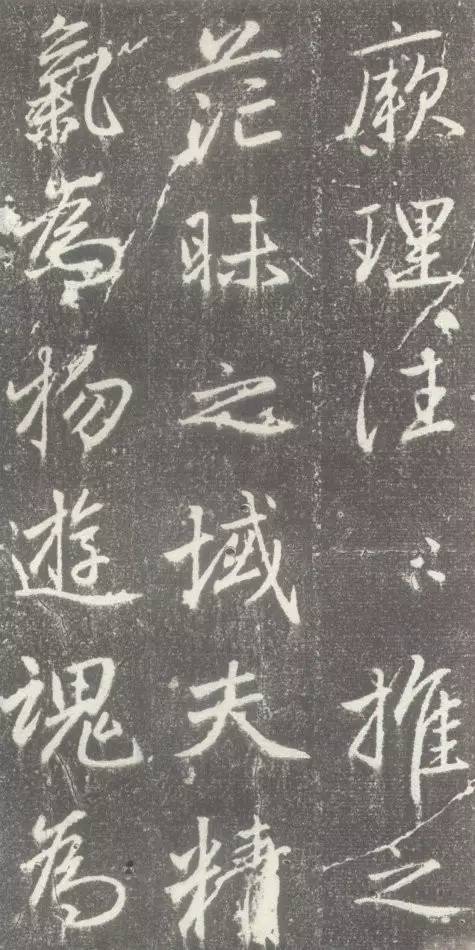 厥理往〻推之
茫昧之域夫精
氣為物遊魂為